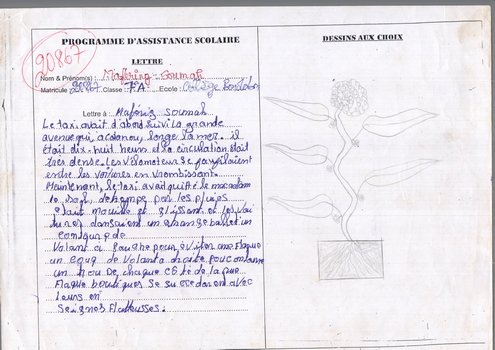 PROGRAMME D'ASSISTANCE SCOLAIRE
DESSINS AUX CHOIX
20867
LETTRE
Nom & Prénom(s) : Mafering Soumah
Matricule 20867 Classe : 7e A Ecole : Collège
Lettre à : Mafering Soumah
Le taxi avait d'abord suivi la grande
avenue qui, a conakry, longe la mer. il
était dix-huit heures et la circulation était
très dense. Les vélomoteur se faufilaient
entre les voitures en vrombissant.
Maintenant, le taxi avait quitté le macadam
le sol, detrempe par les pluies
était mouillé et glissant et les voi
tures dansaient un étrange ballet un
coup de
volant a gauche pour éviter une flaque
un coup de volant a droite pour contourne
un trou De chaque côté de la rue
flaque boutiques Se succedaient avec
leurs en
Seignes